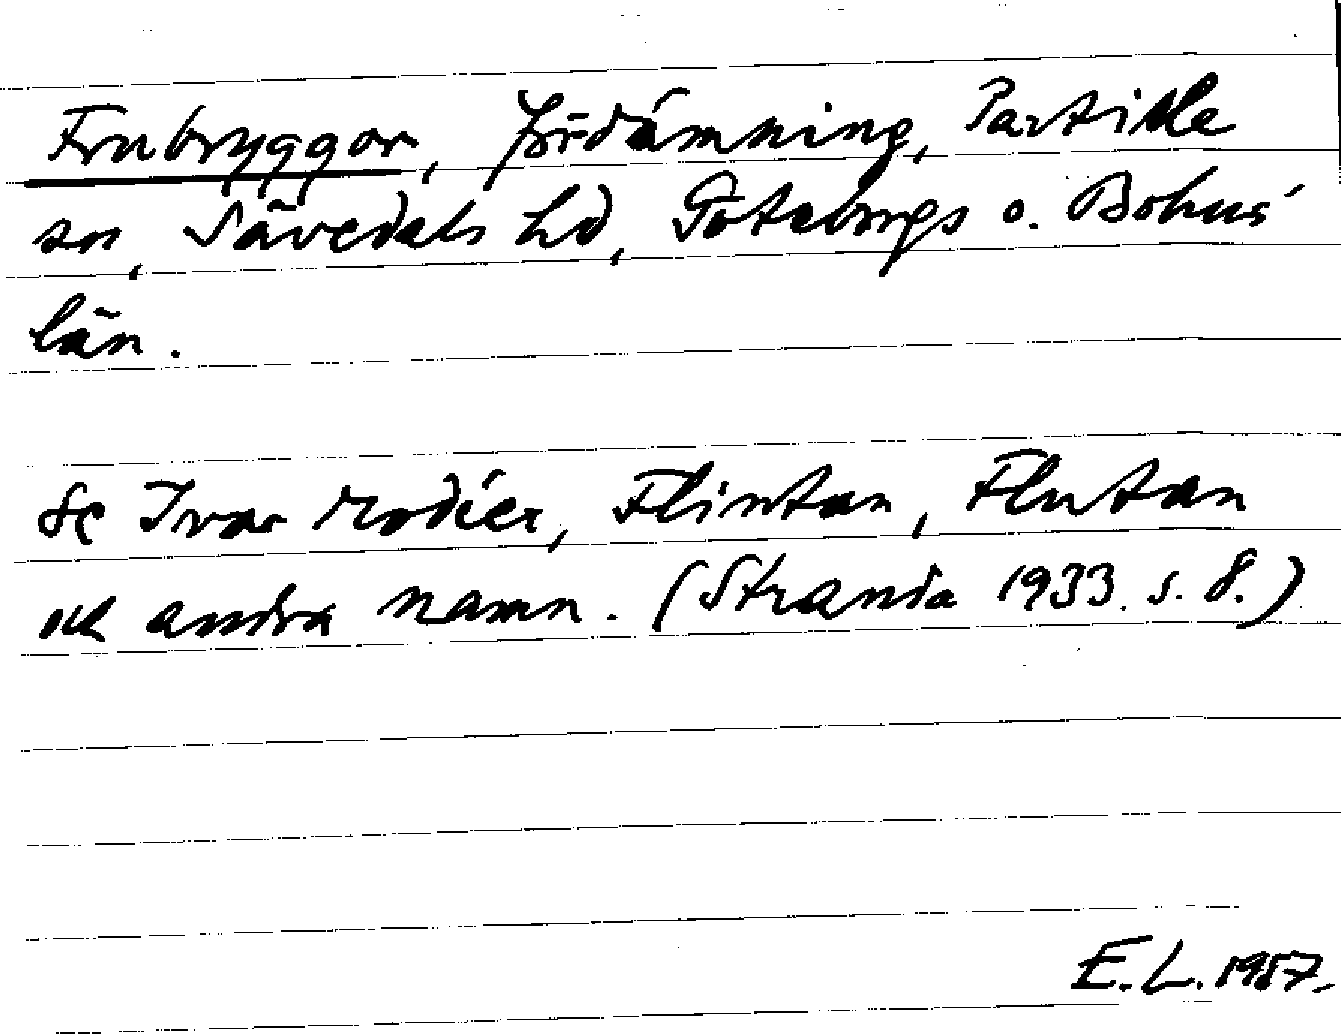 Frubryggor, fördämning, Partille
sn, Sävedals hd, Göteborgs o. Bohus
län.
Se Ivar Modéer, Flintan, Flutan
och andra namn. (Stranda 1933. s. 8.)
E. L. 1957.